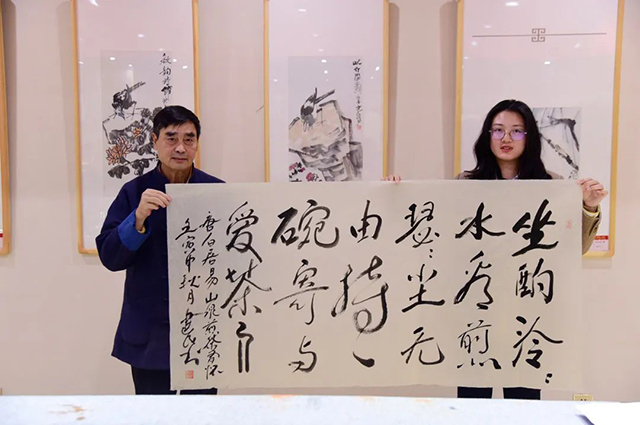 坐酌泠〻
水看煎
瑟〻尘无
由持一
碗寄与
爱茶人
唐白居易山泉煎茶有怀
秋月